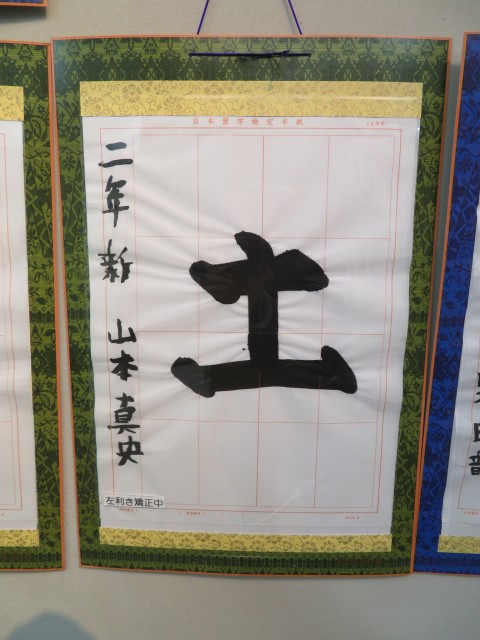 日本習字検定手紙
土
二年 新 山本真央
左利き矯正中